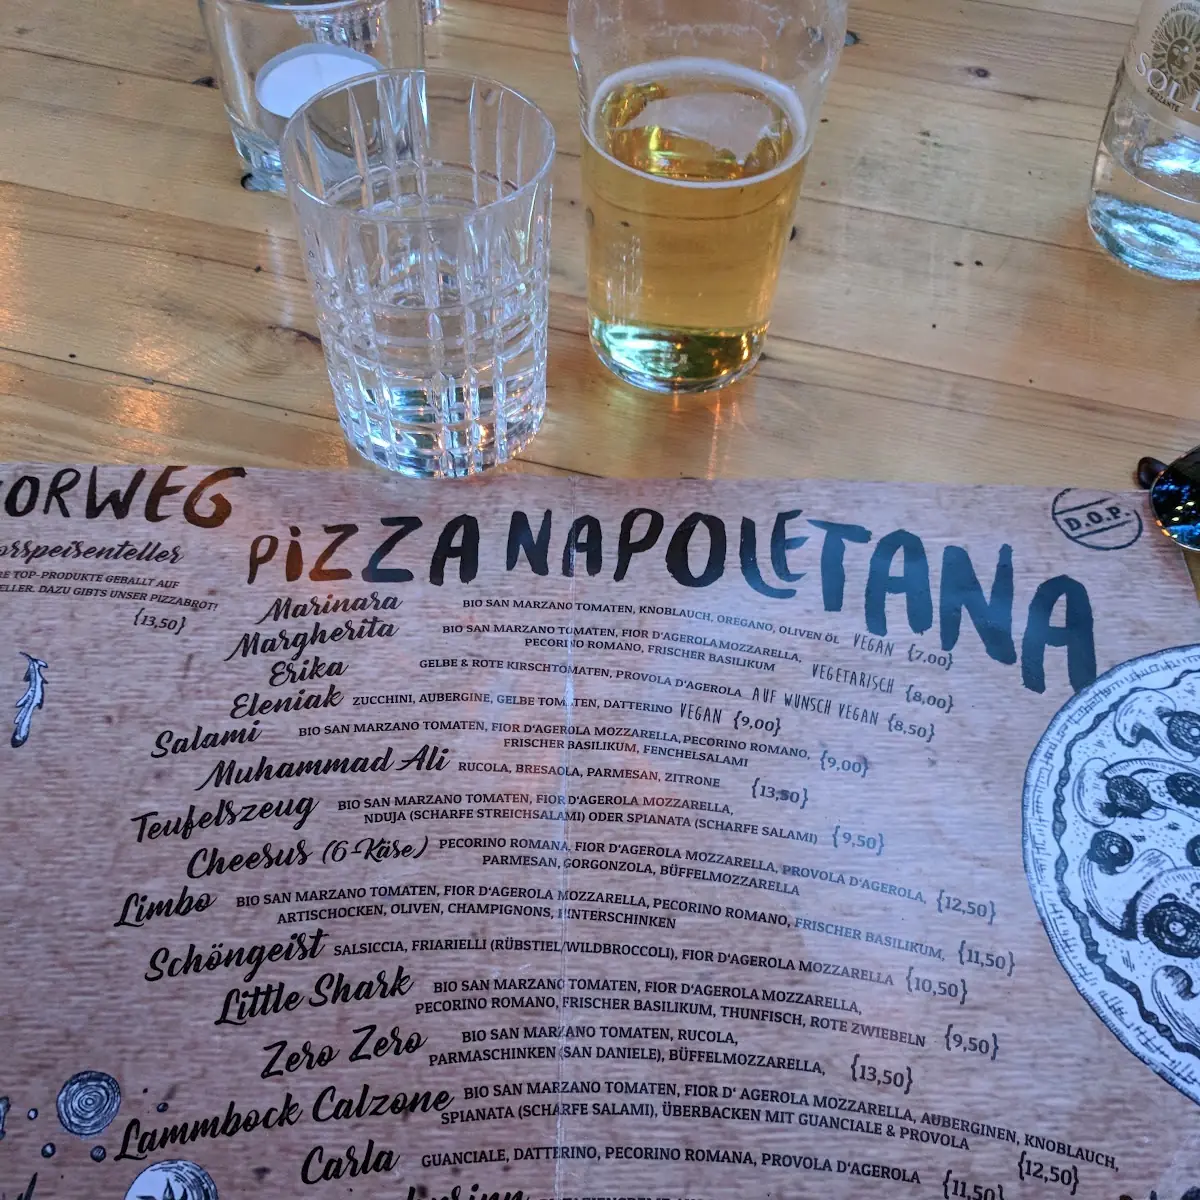 SOL
ORWEG
orspeisenteller
RE TOP-PRODUKTE GEBALLT AUF
ELLER. DAZU GIBTS UNSER PIZZABROT!
{13,50}
PIZZA NAPOLETANA
D.O.P.
Marinara BIO SAN MARZANO TOMATEN, KNOBLAUCH, OREGANO, OLIVEN ÖL VEGAN {7,00}
Margherita BIO SAN MARZANO TOMATEN, FIOR D'AGEROLA MOZZARELLA,
PECORINO ROMANO, FRISCHER BASILIKUM VEGETARISCH {8,00}
Erika GELBE & ROTE KIRSCHTOMATEN, PROVOLA D'AGEROLA AUF WUNSCH VEGAN {8,50}
Eleniak ZUCCHINI, AUBERGINE, GELBE TOMATEN, DATTERINO VEGAN {9,00}
Salami BIO SAN MARZANO TOMATEN, FIOR D'AGEROLA MOZZARELLA, PECORINO ROMANO,
FRISCHER BASILIKUM, FENCHELSALAMI {9,00}
Muhammad Ali RUCOLA, BRESAOLA, PARMESAN, ZITRONE {13,50}
Teufelszeug BIO SAN MARZANO TOMATEN, FIOR D'AGEROLA MOZZARELLA,
NDUJA (SCHARFE STREICHSALAMI) ODER SPIANATA (SCHARFE SALAMI) {9,50}
Cheesus (6-Käse) PECORINO ROMANA, FIOR D'AGEROLA MOZZARELLA, PROVOLA D'AGEROLA,
PARMESAN, GORGONZOLA, BÜFFELMOZZARELLA {12,50}
Limbo BIO SAN MARZANO TOMATEN, FIOR D'AGEROLA MOZZARELLA, PECORINO ROMANO, FRISCHER BASILIKUM,
ARTISCHOCKEN, OLIVEN, CHAMPIGNONS, HINTERSCHINKEN {11,50}
Schöngeist SALSICCIA, FRIARIELLI (RÜBSTIEL/WILDBROCCOLI), FIOR D'AGEROLA MOZZARELLA {10,50}
Little Shark BIO SAN MARZANO TOMATEN, FIOR D'AGEROLA MOZZARELLA,
PECORINO ROMANO, FRISCHER BASILIKUM, THUNFISCH, ROTE ZWIEBELN {9,50}
Zero Zero BIO SAN MARZANO TOMATEN, RUCOLA,
PARMASCHINKEN (SAN DANIELE), BÜFFELMOZZARELLA, {13,50}
Lammbock Calzone BIO SAN MARZANO TOMATEN, FIOR D' AGEROLA MOZZARELLA, AUBERGINEN, KNOBLAUCH,
SPIANATA (SCHARFE SALAMI), ÜBERBACKEN MIT GUANCIALE & PROVOLA {12,50}
Carla GUANCIALE, DATTERINO, PECORINO ROMANA, PROVOLA D'AGEROLA {11,50}